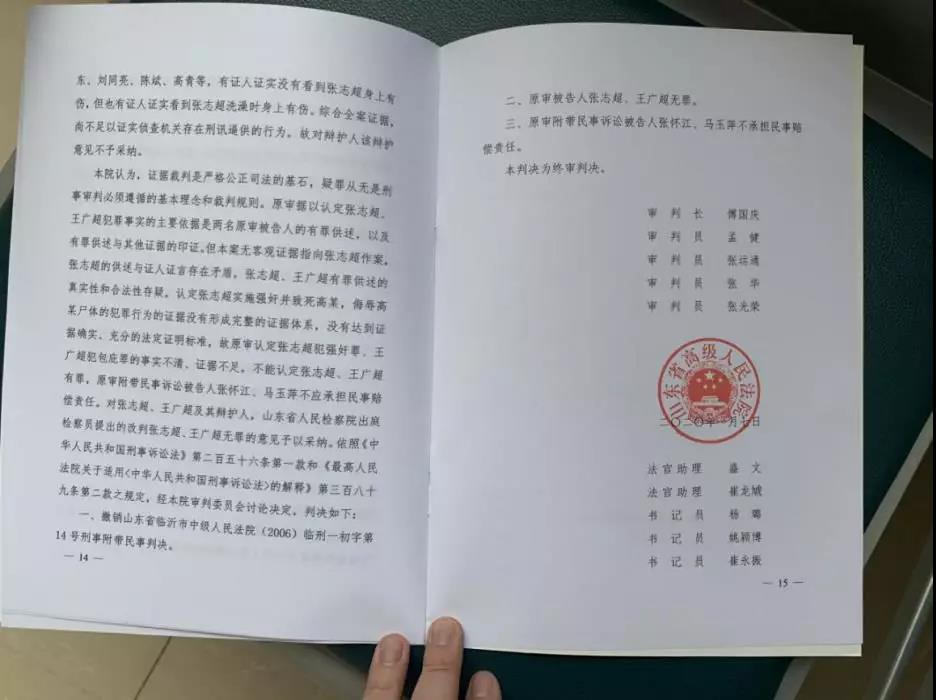 东、刘同亮、陈斌、高青等，有证人证实没有看到张志超身上有
伤，但也有证人证实看到张志超洗澡时身上有伤。综合全案证据，
尚不足以证实侦查机关存在刑讯逼供的行为。故对辩护人该辩护
意见不予采纳。
本院认为，证据裁判是严格公正司法的基石，疑罪从无是刑
事审判必须遵循的基本理念和裁判规则。原审据以认定张志超、
王广超犯罪事实的主要依据是两名原审被告人的有罪供述，以及
有罪供述与其他证据的印证。但本案无客观证据指向张志超作案，
张志超的供述与证人证言存在矛盾。张志超、王广超有罪供述的
真实性和合法性存疑。认定张志超实施强奸并致死高某，侮辱高
某尸体的犯罪行为的证据没有形成完整的证据体系，没有达到证
据确实、充分的法定证明标准，故原审认定张志超犯强奸罪、王
广超犯包庇罪的事实不清、证据不足。不能认定张志超、王广超
有罪，原审附带民事诉讼被告人张怀江、马玉萍不应承担民事赔
偿责任。对张志超、王广超及其辩护人，山东省人民检察院出庭
检察员提出的改判张志超、王广超无罪的意见予以采纳。依照《中
华人民共和国刑事诉讼法》第二百五十六条第一款和《最高人民
法院关于适用〈中华人民共和国刑事诉讼法〉的解释》第三百八十
九条第二款之规定，经本院审判委员会讨论决定，判决如下：
一、撤销山东省临沂市中级人民法院（2006）临刑一初字第
14 号刑事附带民事判决。
— 14 —
二、原审被告人张志超、王广超无罪。
三、原审附带民事诉讼被告人张怀江、马玉萍不承担民事赔
偿责任。
本判决为终审判决。
审 判 长 傅国庆
审 判 员 孟 健
审 判 员 张运通
审 判 员 张 华
审 判 员 张光荣
山东省高级人民法院
二〇二〇年 月七日
法官助理 盛 文
法官助理 崔龙
书 记 员 杨 璐
书 记 员 姚颖博
书 记 员 崔永振
— 15 —